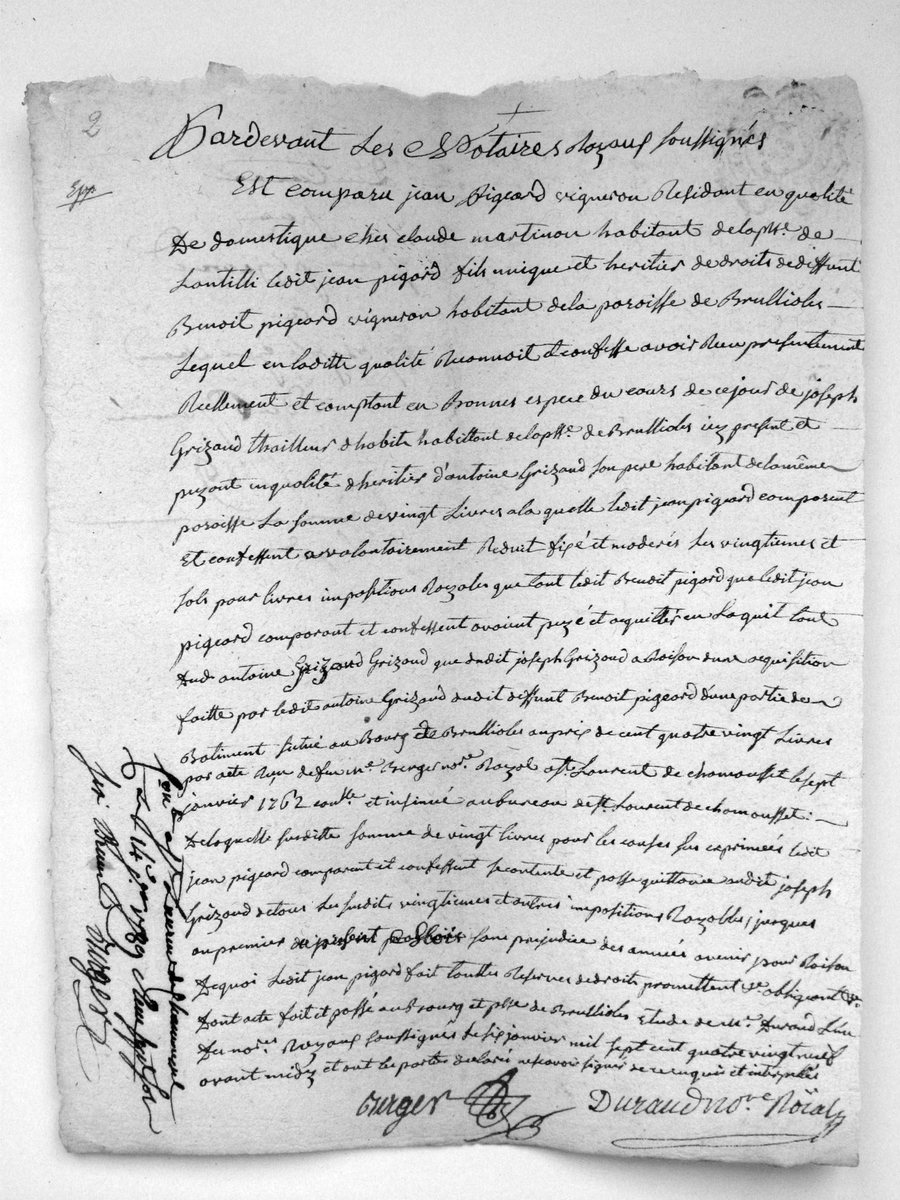 2
Exp
Pardevant Les Notaires Royaux soussignés
Est comparu jean Pigeard vigneron Residant en qualité
De domestique ches claude martinon habitant de la psse. de
Lantilli ledit jean pigard fils unique et heritier de droits de deffunt
Benoit pigeard vigneron habitant de la paroisse de Brullioles
Lequel en laditte qualité Reconnoit & confesse avoir Reçu presentement
Reellement et comptant en Bonnes espece du cours de ce jour de joseph
Grizaud thailleur d'habits habittant de la psse. de Brullioles icy present et
payant en qualité d'heritier d'antoine Grizaud son pere habitant de la même
paroisse La somme de vingt Livres a la quelle ledit jean pigeard comparent
Et confessent a volontairement Reduit fixé et moderés Les vingtiemes et
sols pour livres impositions Royales que tant ledit Benoit pigard que ledit jean
pigeard comparant et confessent avoient payé et acquitter en Laquit tant
dud. antoine Grizaud Grizaud que dudit joseph Grizaud a Raison d'une acquisition
faitte par ledit antoine Grizaud dudit deffunt Benoit pigeard d'une partie de
Batiment situé au Bourg de Brullioles au prix de cent quatre vingt Livres
par acte Reçu de feu Me. Berger nore. Royal a St. Laurent de chamousset le sept
janvier 1762 conlle. et insinué au bureau de St. Laurent de chamousset :
De laquelle susditte somme de vingt livres pour les causes sus exprimées ledit
jean pigeard comparent et confessent se contente et passe quittance audit joseph
Grizaud de tous Les susdits vingtiemes et autres impositions Royalles, jusques
au premier du present sans prejudice des années avenir pour Raison
De quoi Ledit jean pigard fait touttes Reserves de droits promettent &c. obligeant &c.
Dont acte fait et passé au Bourg et psse de Brullioles Etude de Me. Durand L'un
Des nores. Royaux soussignés le six janvier mil sept cent quatre vingt neuf
avant midy et ont les parties declaré ne savoir signer de ce enquis et interpelés
Berger
Durand nore. Roïal
Conlé a St Laurent de Chamousset
Le 14 jer 1789
Berger